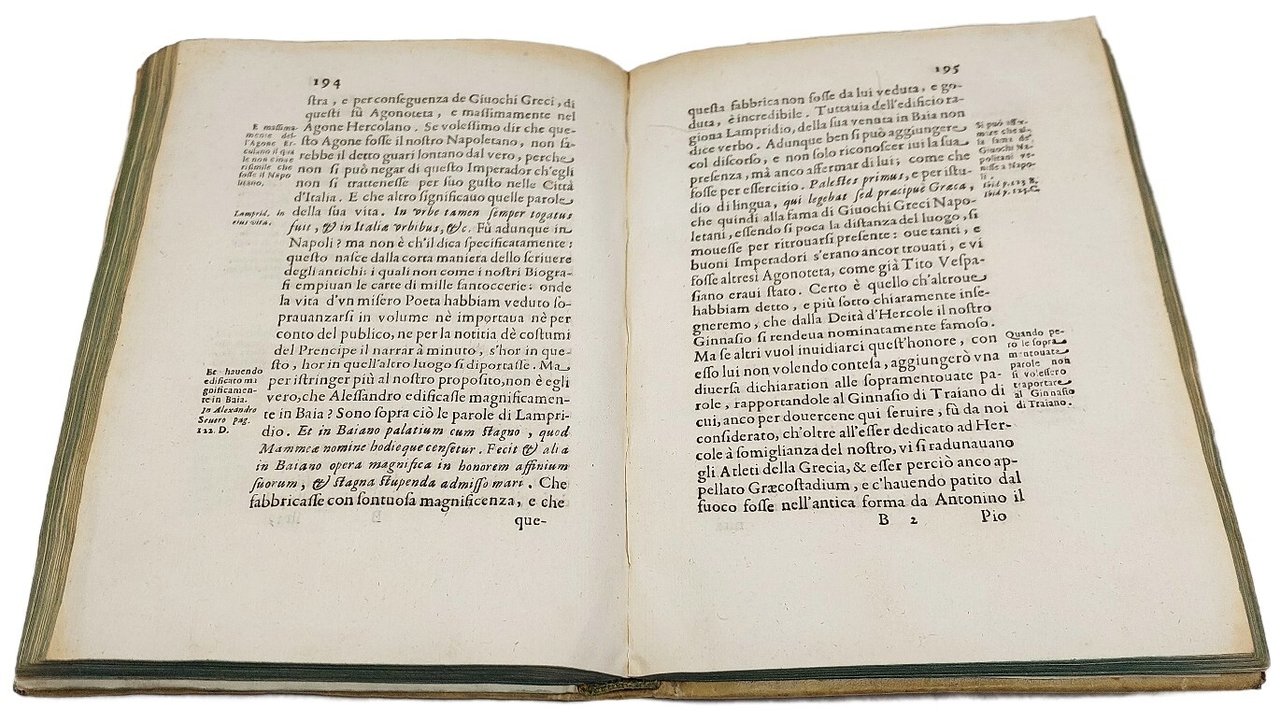 194
ſtra, e per conſeguenza de Giuochi Greci, di
queſti fù Agonoteta, e maſſimamente nel
Agone Hercolano. Se voleſſimo dir che que-
ſto Agone foſſe il noſtro Napoletano, non ſa-
rebbe il detto guari lontano dal vero, perche
non ſi può negar di queſto Imperador ch'egli
non ſi tratteneſſe per ſuo guſto nelle Città
d'Italia. E che altro ſignificauo quelle parole
della ſua vita. In vrbe tamen ſemper togatus
fuit, & in Italiæ vrbibus, &c. Fù adunque in
Napoli? ma non è ch'il dica ſpecificatamente:
queſto naſce dalla corta maniera dello ſcriuere
degli antichi: i quali non come i noſtri Biogra-
fi empiuan le carte di mille fantoccerie: onde
la vita d'vn miſero Poeta habbiam veduto ſo-
prauanzarſi in volume nè importaua nè per
conto del publico, ne per la notitia dè coſtumi
del Prencipe il narrar à minuto, s'hor in que-
ſto, hor in quell'altro luogo ſi diportaſſe. Ma
per iſtringer più al noſtro propoſito, non è egli
vero, che Aleſſandro edificaſſe magnificamen-
te in Baia? Sono ſopra ciò le parole di Lampri-
dio. Et in Baiano palatium cum ſtagno, quod
Mammeæ nomine hodieque cenſetur. Fecit & alia
in Baiano opera magnifica in honorem affinium
ſuorum, & ſtagna ſtupenda admiſſo mari. Che
fabbricaſſe con ſontuoſa magnificenza, e che
que-
E maſſima-
mente del-
l'Agone Er-
culano il qua
le non è inue
riſimile che
foſſe il Napo
litano.
Lamprid. in
eius vita.
Et hauendo
edificato ma
gnificamen-
te in Baia.
In Alexandro
Seuero pag.
122. D.
195
queſta fabbrica non foſſe da lui veduta, e go-
duta, è incredibile. Tuttauia dell'edificio ra-
giona Lampridio, della ſua venuta in Baia non
dice verbo. Adunque ben ſi può aggiungere
col diſcorſo, e non ſolo riconoſcer iui la ſua
preſenza, mà anco affermar di lui; come che
foſſe per eſſercitio. Paleſtes primus, e per iſtu-
dio di lingua, qui legebat ſed præcipuè Græca,
che quindi alla fama di Giuochi Greci Napo-
letani, eſſendo ſi poca la diſtanza del luogo, ſi
moueſſe per ritrouarſi preſente: oue tanti, e
buoni Imperadori s'erano ancor trouati, e vi
foſſe altresì Agonoteta, come già Tito Veſpa-
ſiano eraui ſtato. Certo è quello ch'altroue
habbiam detto, e più ſotto chiaramente inſe-
gneremo, che dalla Deità d'Hercole il noſtro
Ginnaſio ſi rendeua nominatamente famoſo.
Ma ſe altri vuol inuidiarci queſt'honore, con
eſſo lui non volendo conteſa, aggiungerò vna
diuerſa dichiaration alle ſopramentouate pa-
role, rapportandole al Ginnaſio di Traiano di
cui, anco per douercene qui ſeruire, fù da noi
conſiderato, ch'oltre all'eſſer dedicato ad Her-
cole à ſomiglianza del noſtro, vi ſi radunauano
gli Atleti della Grecia, & eſſer perciò anco ap-
pellato Græcoſtadium, e c'hauendo patito dal
fuoco foſſe nell'antica forma da Antonino il
B 2 Pio
Si può affer-
mare che al-
la fama de'
Giuochi Na-
politani ve-
niſſe a Napo-
li.
Ibid p. 123 B.
Ibid p. 125.C.
Quando pe-
rò le ſopra
mentouate
parole non
ſi voleſſero
traportare
al Ginnaſio
di Traiano.